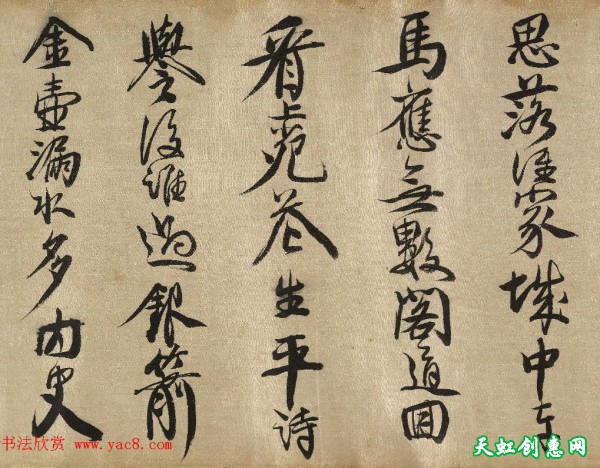 思落誰家城中車
馬應無數閣道回
看上苑花生平詩
譽後誰過銀箭
金壺漏水多內史
书法欣赏 www.yac8.com
天虹创意网